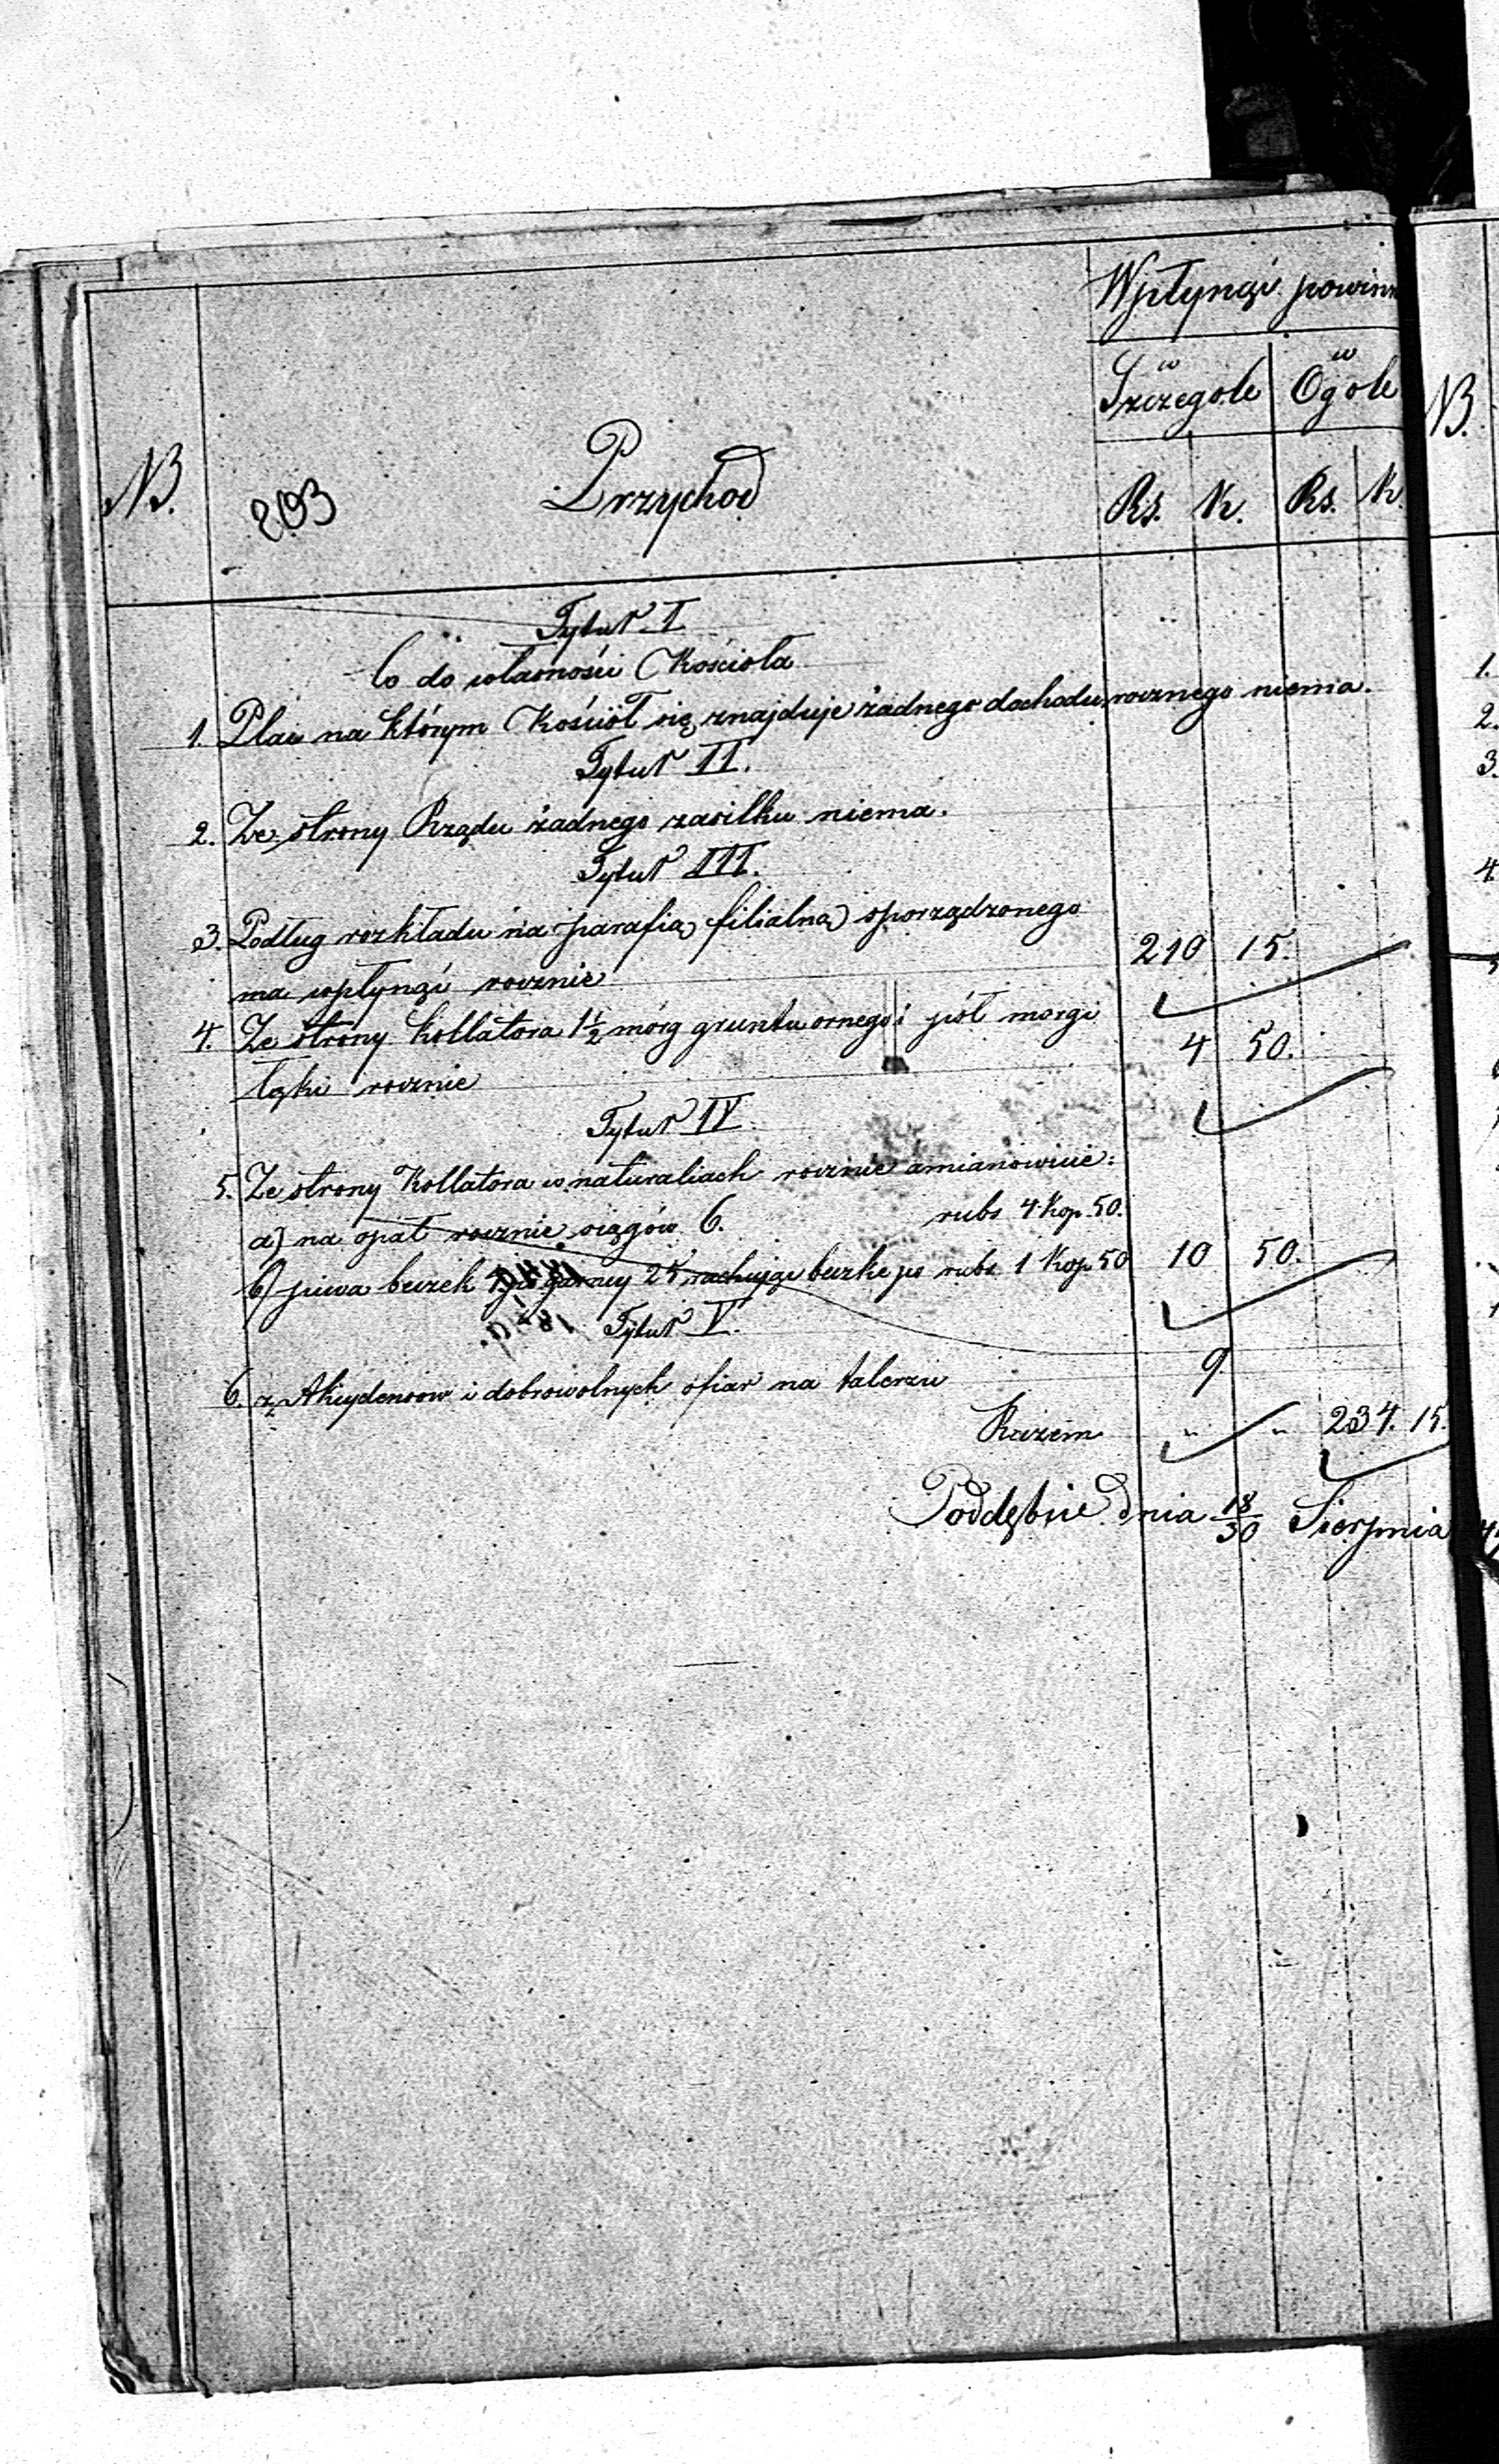 Wpłynąć powinn
w Szczególe w Ogóle
NB. 203 Przychod Rs. K. Rs. K.
Tytuł I
Co do własności Kościoła
1. Plac na którym Kościół się znajduje żadnego dochodu rocznego niema.
Tytuł II.
2. Ze strony Rządu żadnego zasiłku niema.
Tytuł III.
3. Podług rozkładu na parafią filialną sporządzonego
ma wpłynąć rocznie 210 15.
4. Ze strony Kollatora 1½ morg gruntu ornego i pół morgi
łąki rocznie 4 50.
Tytuł IV.
5. Ze strony Kollatora w naturaliach rocznie amianowicie:
a) na opał rocznie siągów 6. rubs 4 Kop. 50.
b) piwa beczek garncy 25 rachując beczkę po rubs. 1 Kop 50 10 50.
Tytuł V.
6. z Akcydensow i dobrowolnych ofiar na talerzu 9
Razem " " 234. 15.
Poddębice dnia 18/30 Sierpnia
NB.
1.
2.
3.
4.